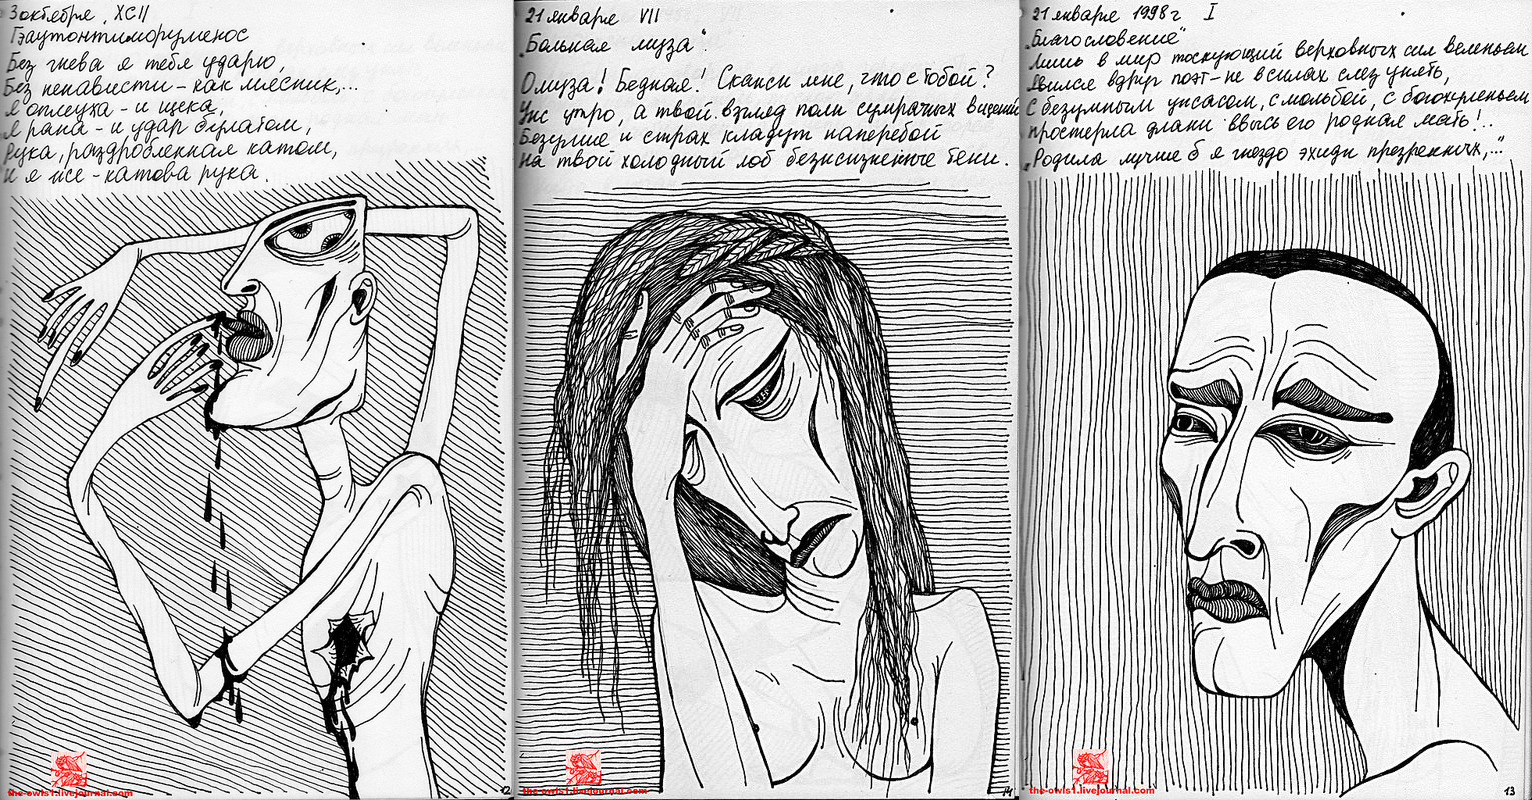 3 октября, XCII
Гэаутонтиморуменос
Без гнева я тебя ударю,
Без ненависти - как мясник,...
Я оплеуха - и щека,
Я рана - и удар булатом,
Рука, раздробленная катом,
И я же - катова рука.
the-owls1.livejournal.com
12
21 января VII
"Больная муза"
О муза! Бедная! Скажи мне, что с тобой?
Уж утро, а твой взгляд полн сумрачных видений
Безумие и страх кладут наперебой
на твой холодный лоб безжизненные тени.
the-owls1.livejournal.com
21 января 1998 г I
"Благословение"
Лишь в мир тоскующий верховных сил веленьем
Явился вдруг поэт - не в силах слез унять,
С безумным ужасом, с мольбой, с богохуленьем
простерла длани ввысь его родная мать!..
"Родила лучше б я гнездо эхидн презренных,..."
the-owls1.livejournal.com
13